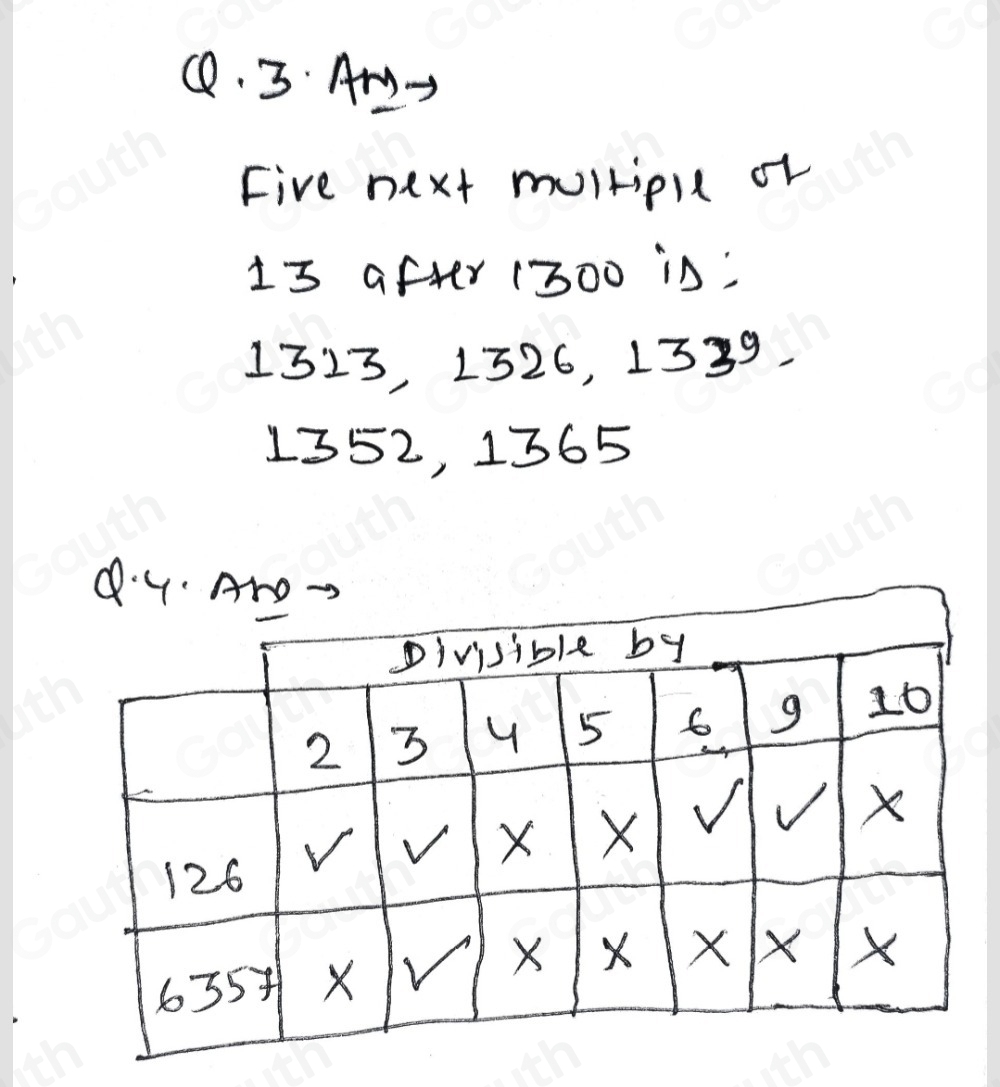 Q.3. Ans→
Five next multiple of
13 after 1300 is:
1313, 1326, 1339,
1352, 1365
Q.4. Ans→
Divisible by
2 3 4 5 6 9 10
126 ✓ ✓ X X ✓ ✓ X
6357 X ✓ X X X X X
Gauth